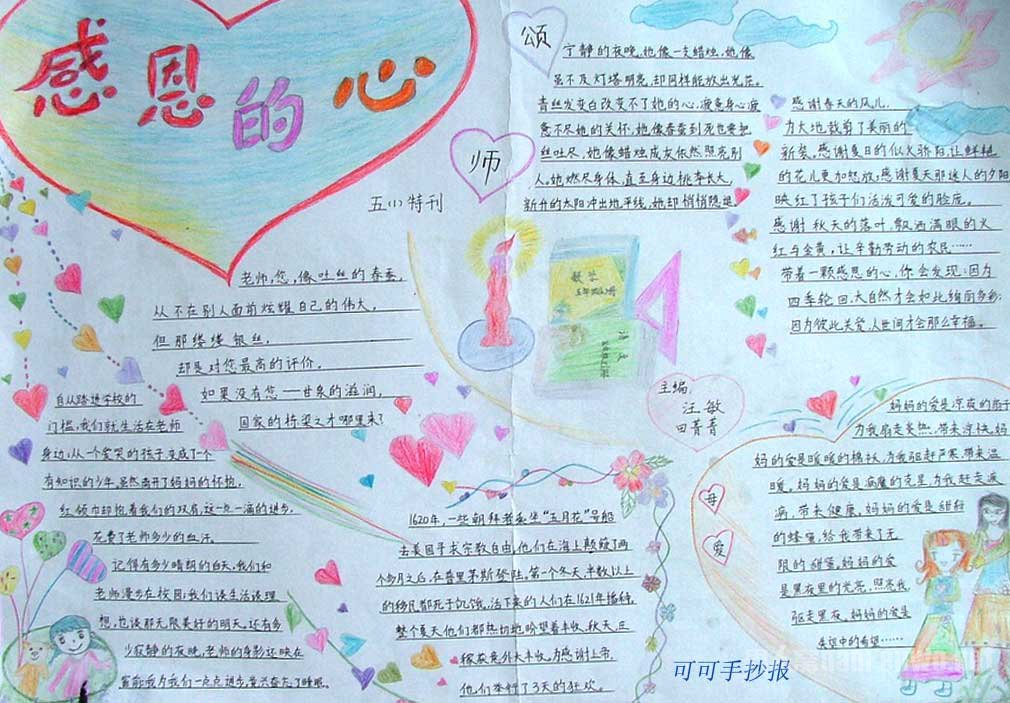 感恩的心
五(1)特刊
颂
师
宁静的夜晚,她像一支蜡烛,她像
虽不及灯塔明亮,却同样能放出光茫。
青丝发变白改变不了她的心,疲惫身心疲
惫不尽她的关怀,她像春蚕到死也要把
丝吐尽,她像蜡烛成灰依然照亮别
人。她燃尽身体,直至身边桃李长大,
新升的太阳冲出地平线,她却悄悄隐退。
感谢春天的风儿,
为大地裁剪了美丽的
新装。感谢夏日的似火骄阳,让鲜艳
的花儿更加怒放;感谢夏天那迷人的夕阳
映红了孩子们活泼可爱的脸庞。
感谢秋天的落叶,飘洒满眼的火
红与金黄,让辛勤劳动的农民……
带着一颗感恩的心,你会发现:因为
四季轮回,大自然才会如此绚丽多彩;
因为彼此关爱,人世间才会那么幸福。
老师,您,像吐丝的春蚕,
从不在别人面前炫耀自己的伟大,
但那缕缕银丝,
却是对您最高的评价,
如果没有您——甘泉的滋润,
国家的栋梁之才哪里来?
数学
语文
主编:
汪敏
田菁菁
自从踏进学校的
门槛,我们就生活在老师
身边,从一个爱哭的孩子,变成了一个
有知识的少年。虽然离开了妈妈的怀抱,
红领巾却抱着我们的双肩,这一点一滴的进步,
花费了老师多少的血汗。
记得有多少晴朗的白天,我们和
老师漫步在校园;我们谈生活谈理
想,也谈那无限美好的明天,还有多
少寂静的夜晚,老师的身影还映在
窗前
1620年,一些朝拜者乘坐“五月花”号船
去美国寻求宗教自由,他们在海上颠簸了两
个多月之后,在普里茅斯登陆。第一个冬天,半数以上
的移民都死于饥饿,活下来的人们在1621年播种,
整个夏天他们都热切地盼望着丰收,秋天,庄
稼获意外大丰收。为感谢上帝,
他们举行了3天的狂欢。
母
爱
妈妈的爱是凉夜的扇子
为我扇走炎热,带来凉快。妈
妈的爱是暖暖的棉袄,为我驱赶严寒,带来温
暖。妈妈的爱是病魔的克星,为我赶走疾
病,带来健康。妈妈的爱是甜甜
的蜂蜜,给我带来了无
限的甜蜜。妈妈的爱
是黑夜里的光亮,照亮我,
驱走黑夜。妈妈的爱是
失望中的希望……
可可手抄报